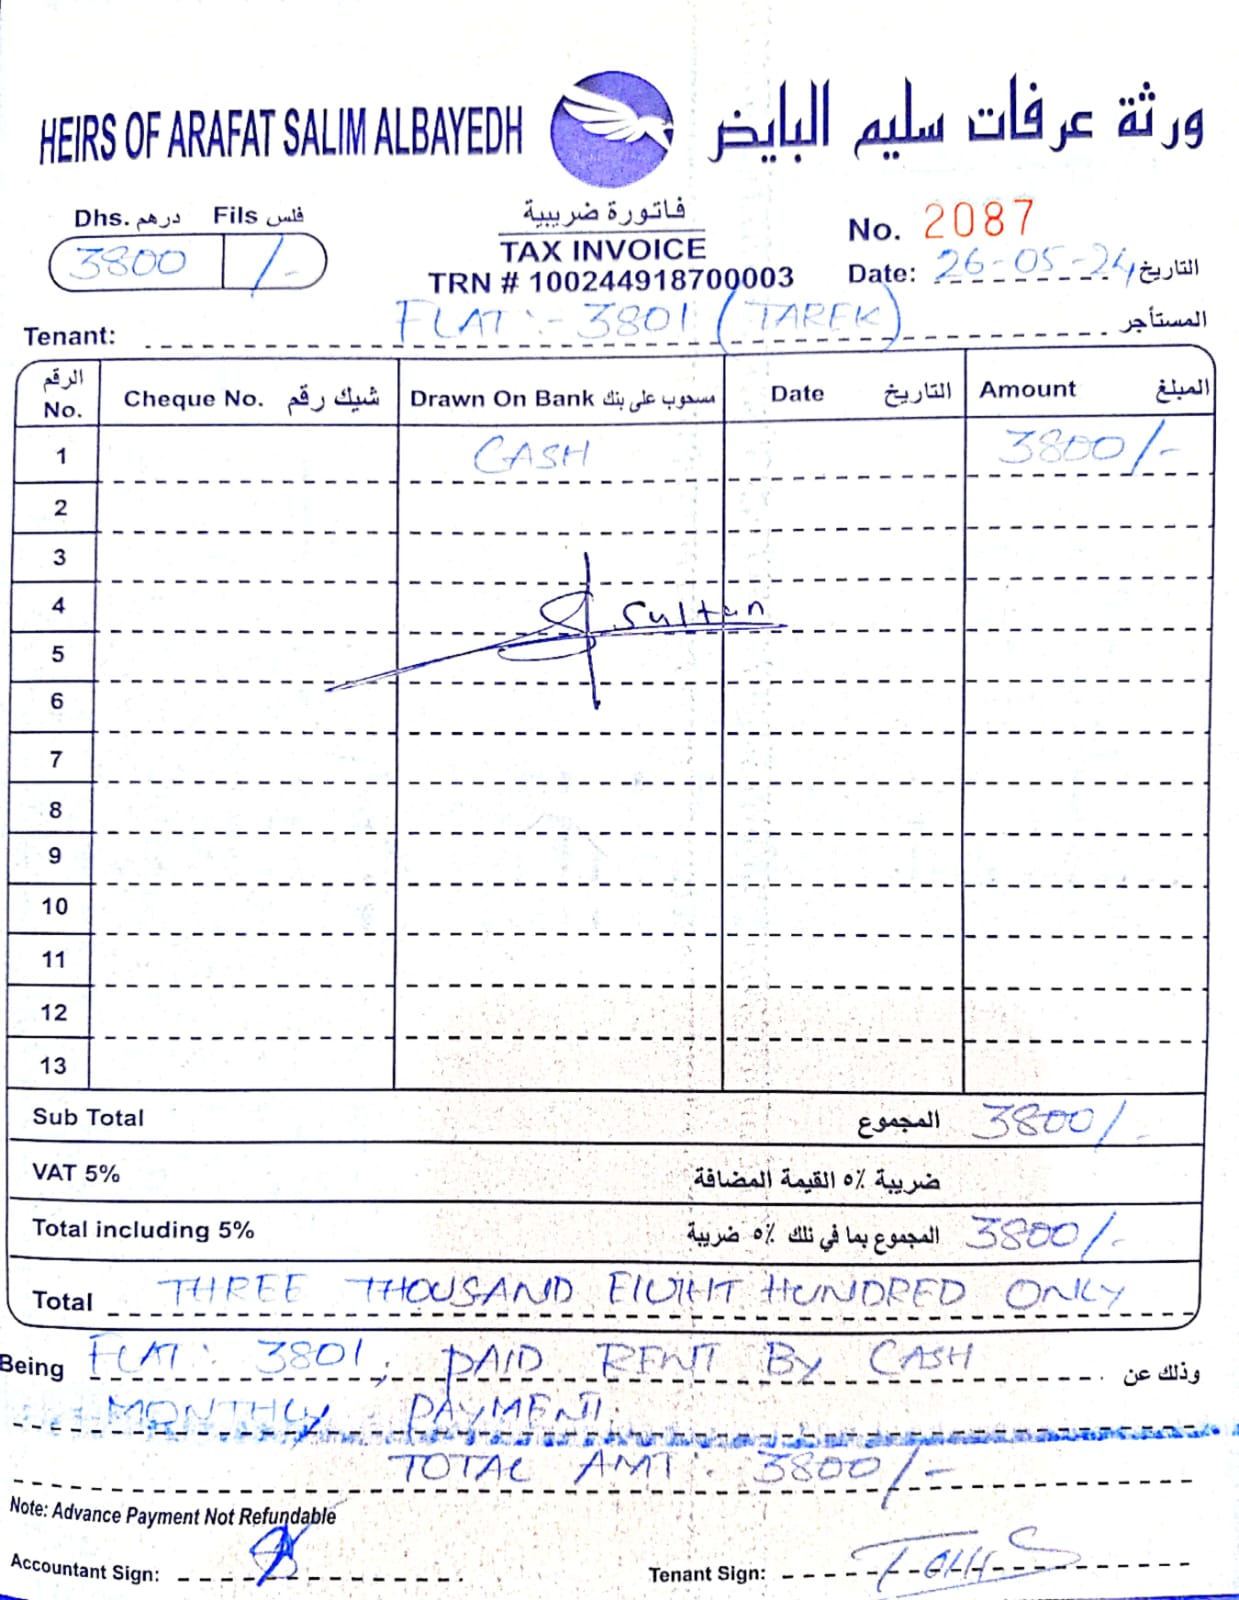 HEIRS OF ARAFAT SALIM ALBAYEDH
ورثة عرفات سليم البايض
Dhs. درهم Fils فلس
3800 /-
فاتورة ضريبية
TAX INVOICE
TRN # 100244918700003
No. 2087
Date: 26-05-24 التاريخ
Tenant: FLAT :- 3801 (TAREK) المستأجر
الرقم No. Cheque No. شيك رقم Drawn On Bank مسحوب على بنك Date التاريخ Amount المبلغ
1 CASH 3800/-
2
3
4 Sultan
5
6
7
8
9
10
11
12
13
Sub Total المجموع 3800/-
VAT 5% ضريبة ٥٪ القيمة المضافة
Total including 5% المجموع بما في ذلك ٥٪ ضريبة 3800/-
Total THREE THOUSAND EIGHT HUNDRED ONLY
Being FLAT: 3801, PAID RENT BY CASH وذلك عن
MONTHLY PAYMENT.
TOTAL AMT: 3800/-
Note: Advance Payment Not Refundable
Accountant Sign:
Tenant Sign: